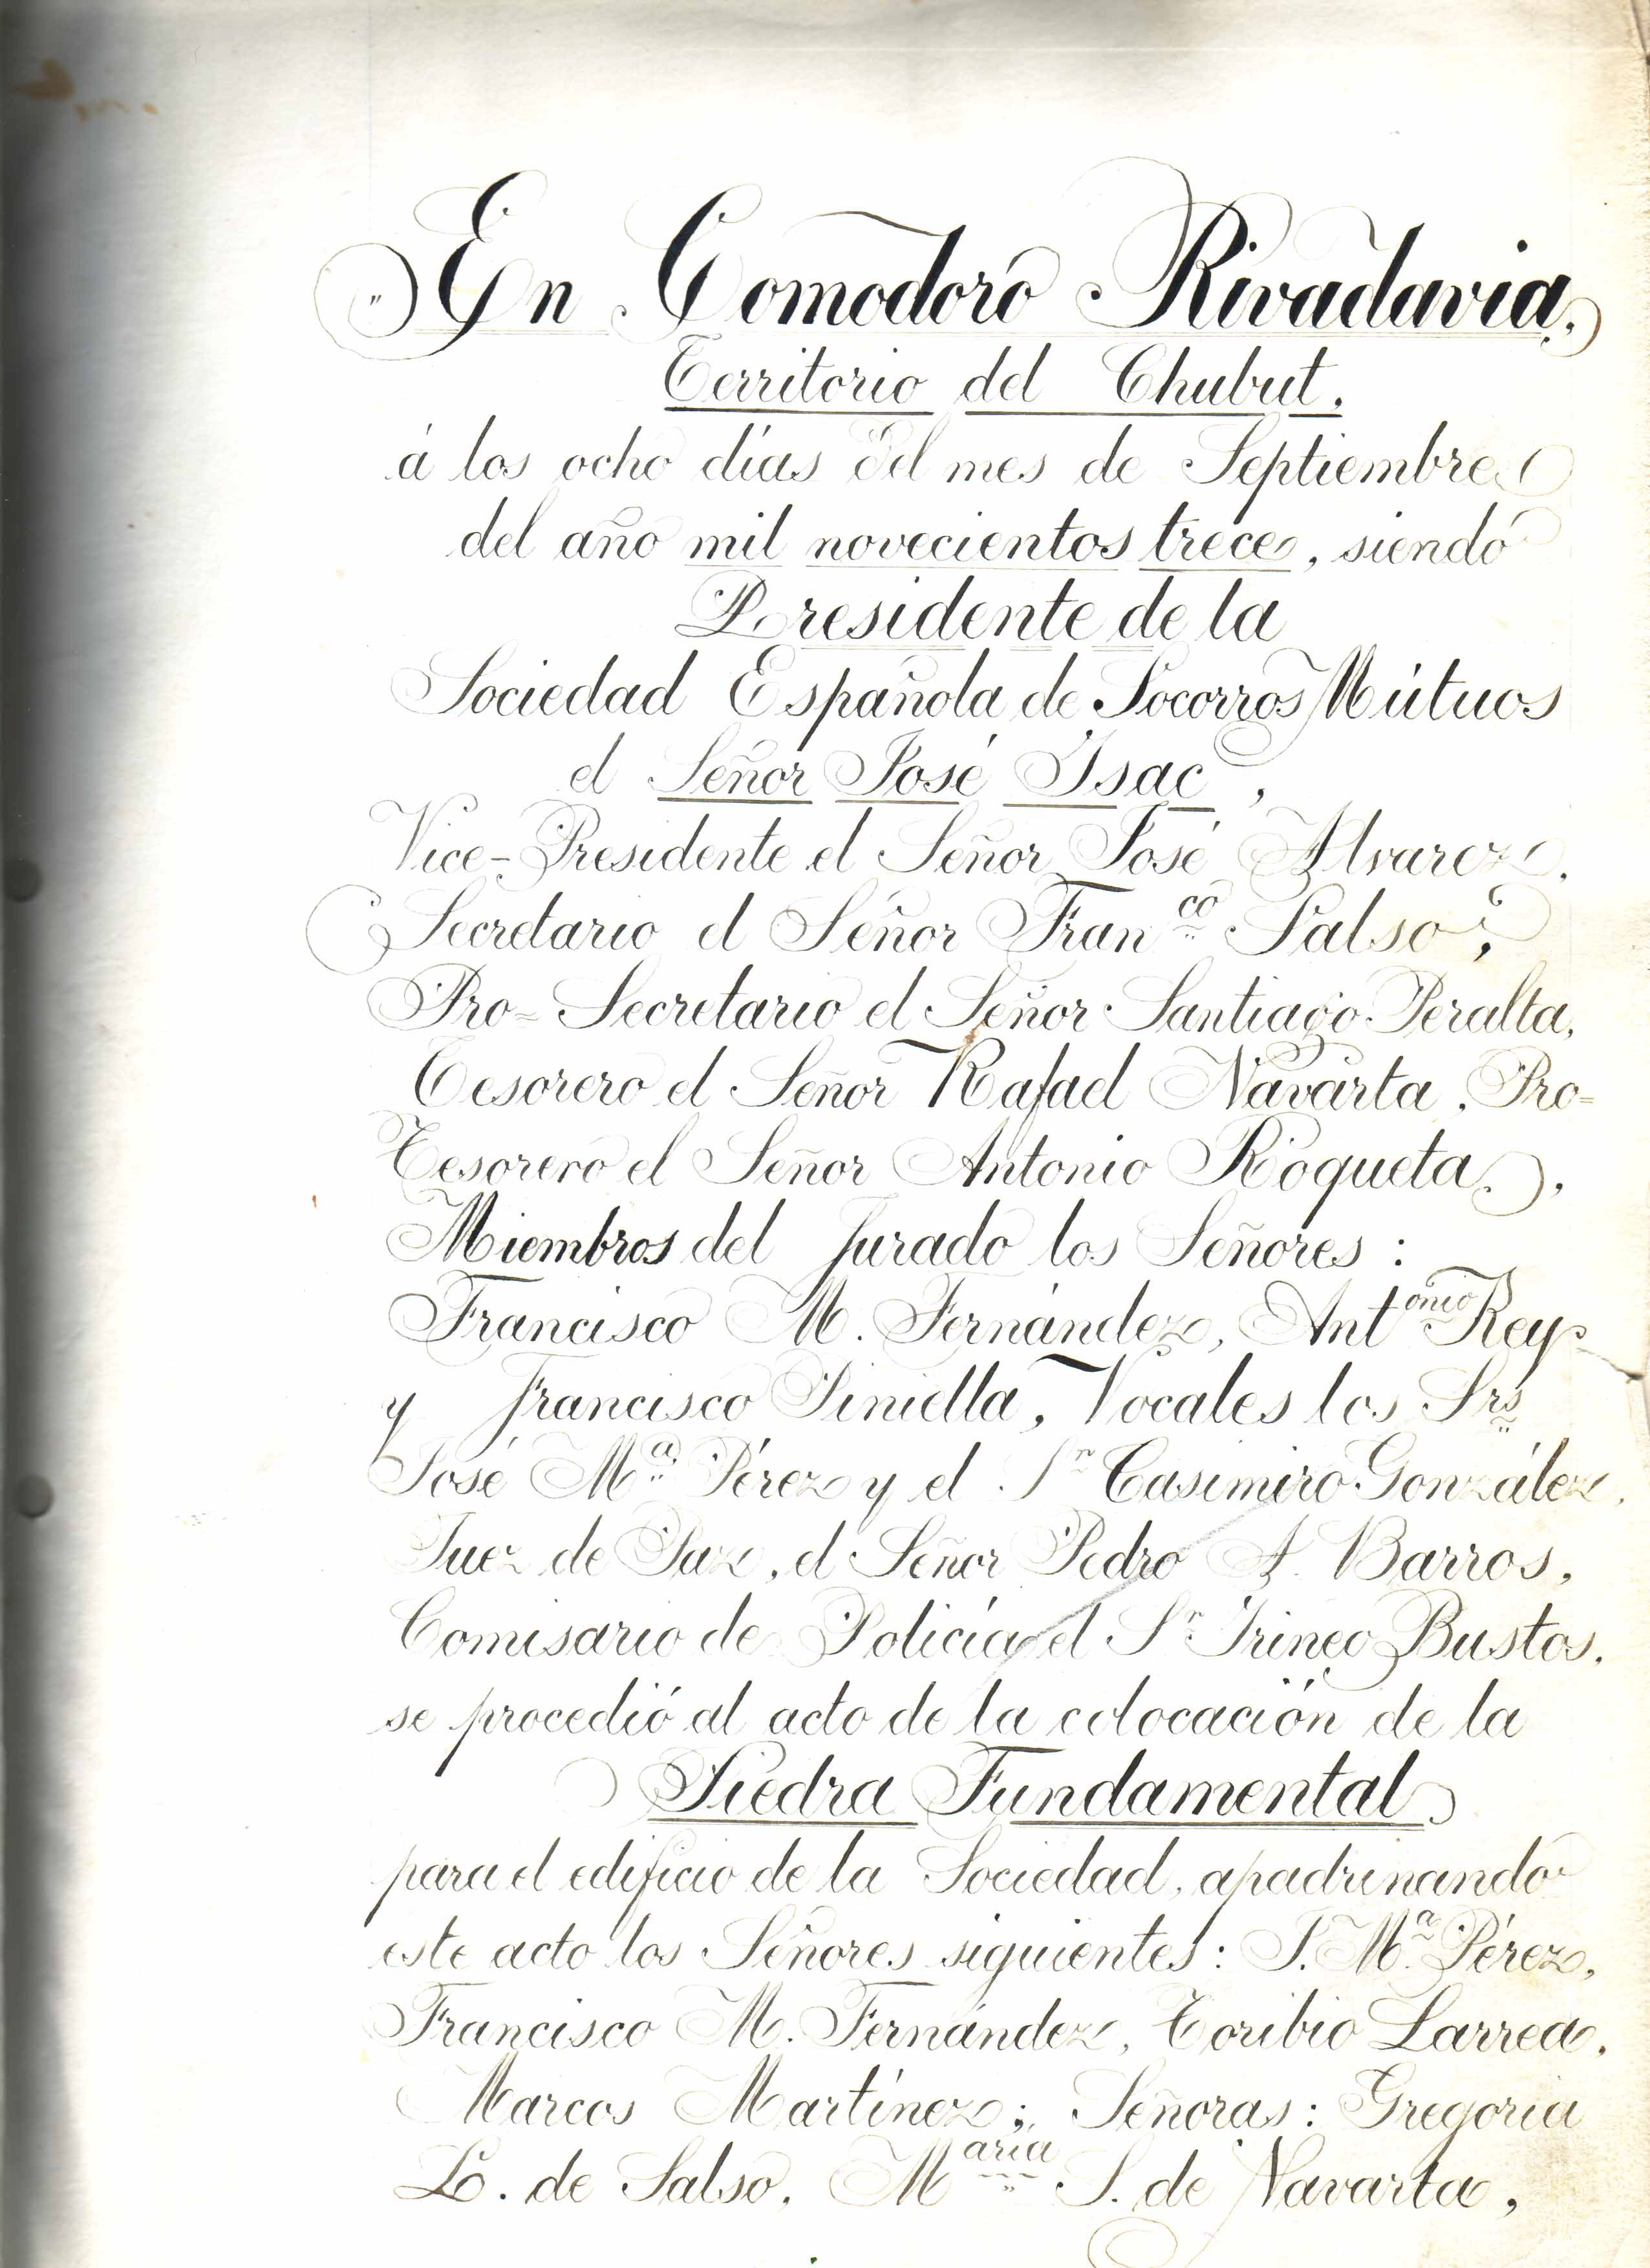 " En Comodoro Rivadavia,
Territorio del Chubut,
á los ocho días del mes de Septiembre
del año mil novecientos trece, siendo
Presidente de la
Sociedad Española de Socorros Mútuos
el Señor José Isac,
Vice-Presidente el Señor José Alvarez,
Secretario el Señor Fran^co Salso;
Pro=Secretario el Señor Santiago Peralta,
Tesorero el Señor Rafael Navarta, Pro=
Tesorero el Señor Antonio Roqueta,
Miembros del Jurado los Señores:
Francisco M. Fernández, Ant^onio Rey
y Francisco Piniella, Vocales los Srs
José M^a Pérez y el S^r Casimiro González,
Juez de Paz, el Señor Pedro A. Barros,
Comisario de Policía el S^r Irineo Bustos,
se procedió al acto de la colocación de la
Piedra Fundamental
para el edificio de la Sociedad, apadrinando
este acto los Señores siguientes: J. M^a Pérez,
Francisco M. Fernández, Toribio Larrea,
Marcos Martínez; Señoras: Gregoria
L. de Salso, M^aria S. de Navarta,